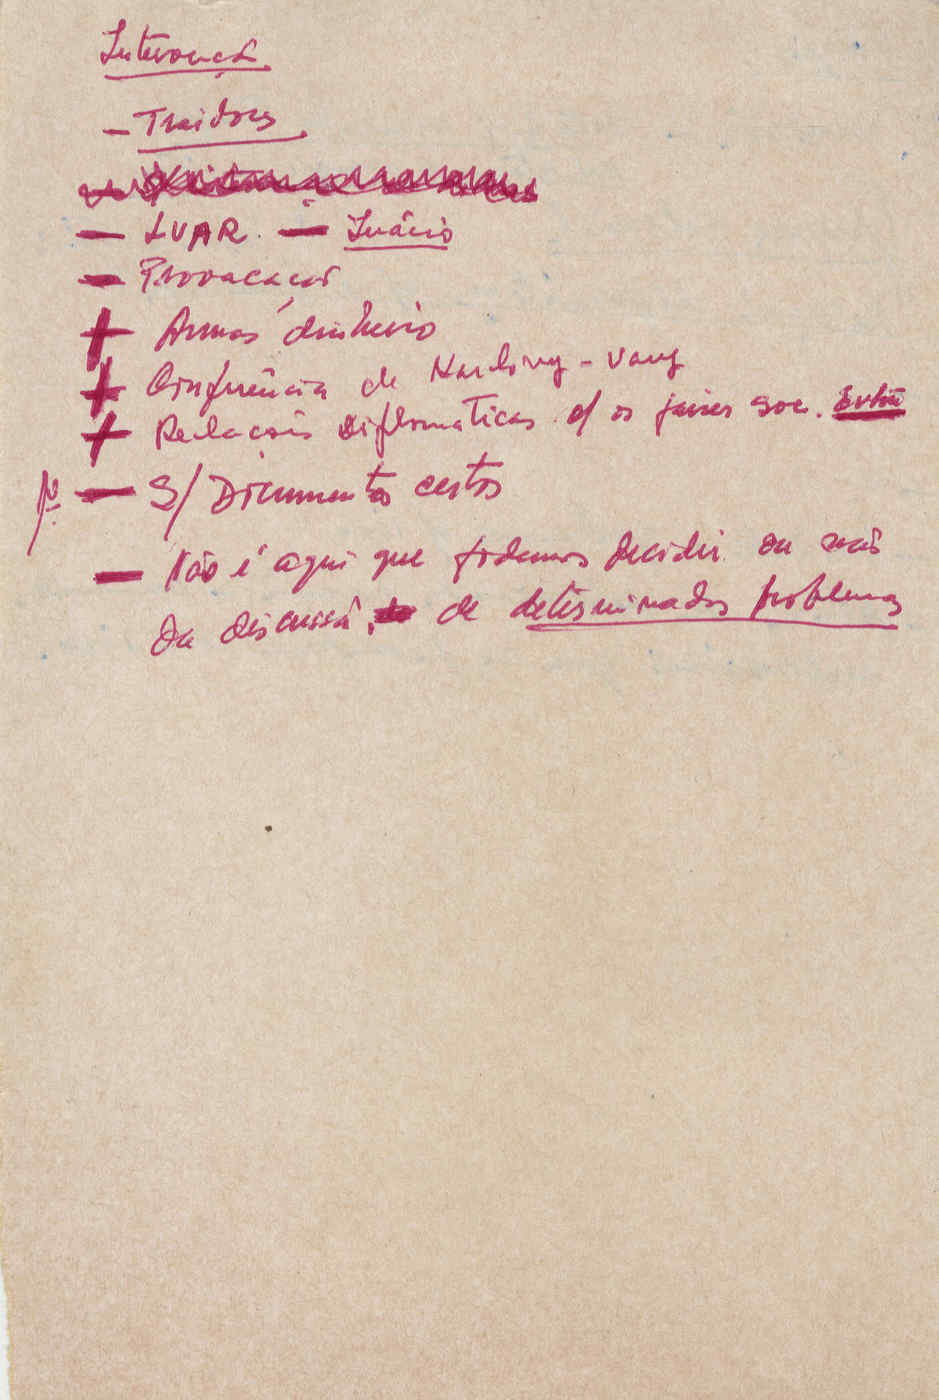 Intervenção
- Traidores
- LUAR. - Inácio
- Provocações
+ Armas dinheiro
+ Conferência de
+ Relações Diplomáticas c/ os países soc.
- S/ Documentos certos
- Não é aqui que podemos decidir ou não
da discussão, de determinados problemas